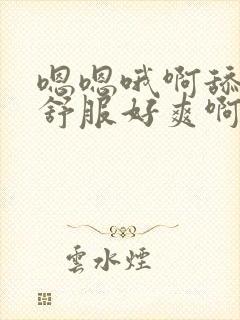 嗯嗯哦啊舔
舒服好爽啊
雲水煙